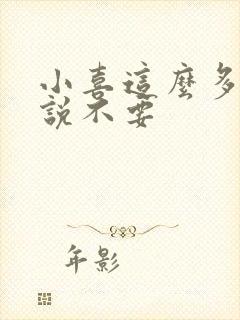 小喜這麼多
說不要
年影